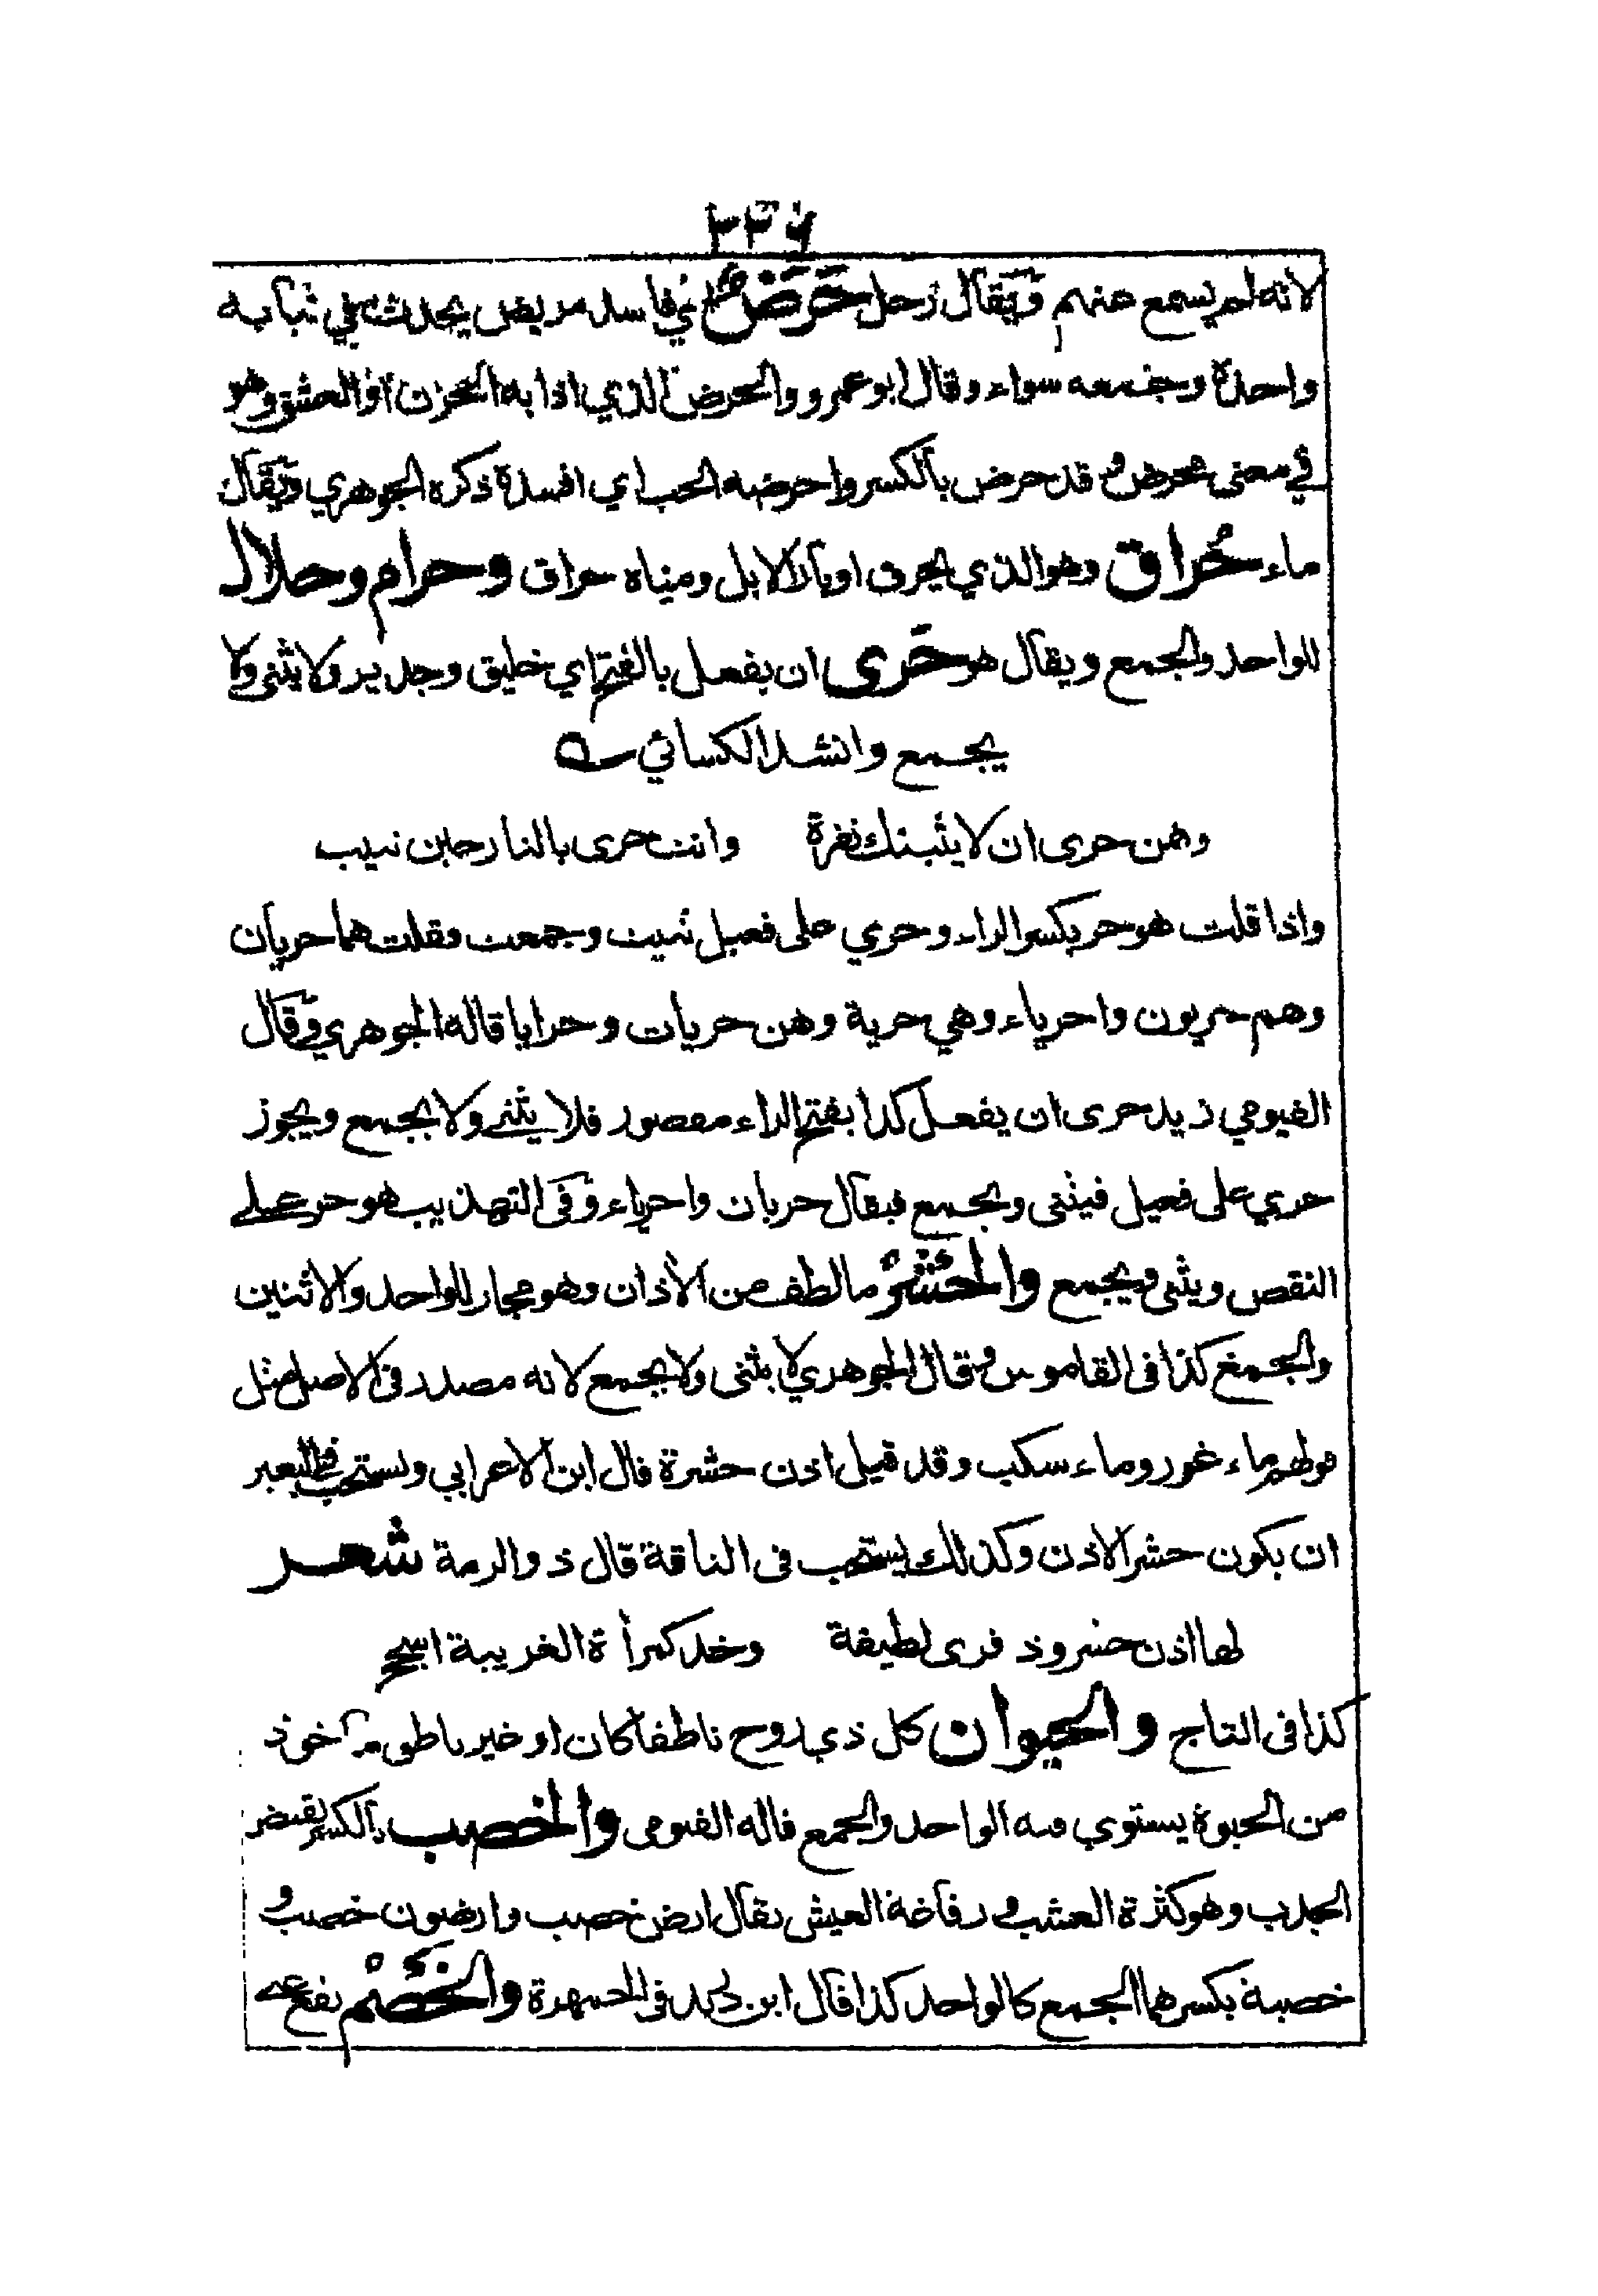 ٢٣٤
لانه لم يسمع منهم ويقال رجل حَرَضٌ اي فاسد مريض يحدث في ثيابه
واحدة وجمعه سواء وقال ابو عمرو والحرض الذي اذابه الحزن او العشق وهو
في معنى محرض وقد حرض بالكسر واحرضه الحب اي افسده ذكره الجوهري ويقال
ماء حُراق وهو الذي يحرق اوبار الابل ومياه حراق وحرام وحلال
للواحد والجمع ويقال هو حَرى ان يفعل بالفتح اي خليق وجدير ولا يثنى ولا
يجمع وانشد الكسائي
وهن حرى ان لا يثبنك نقرة وانت حرى بالنار حين تثيب
واذا قلت هو حر بكسر الراء وحري على فعيل ثنيت وجمعت وقلت هما حريان
وهم حريون واحرياء وهي حرية وهن حريات وحرايا قاله الجوهري وقال
الفيومي زيد حرى ان يفعل كذا بفتح الراء مقصور فلا يثنى ولا يجمع ويجوز
حري على فعيل فيثنى ويجمع فيقال حريان واحرياء وفى التهذيب هو حر على
النقص ويثنى ويجمع والحَشْرُ مالطف من الأذان وهو مجاز للواحد والاثنين
والجمع كذا فى القاموس وقال الجوهري لا يثنى ولا يجمع لانه مصدر فى الاصل مثل
قولهم ماء غور وماء سكب وقد قيل اذن حشرة قال ابن الاعرابي ويستحب في البعير
ان يكون حشر الاذن وكذلك يستحب فى الناقة قال ذو الرمة شعر
لها اذن حشر وذفرى لطيفة وخد كمرأة الغريبة اسجح
كذا فى التاج والحيوان كل ذي روح ناطقا كان او غير ناطق مأخوذ
من الحيوة يستوي فيه الواحد والجمع قاله الفيومى والخصب بالكسر نقيض
الجدب وهو كثرة العشب و رفاغة العيش يقال ارض خصب وارضون خصب و
خصبة بكسرهما الجمع كالواحد كذا قال ابن دريد فى الجمهرة والخَصْم بفتح